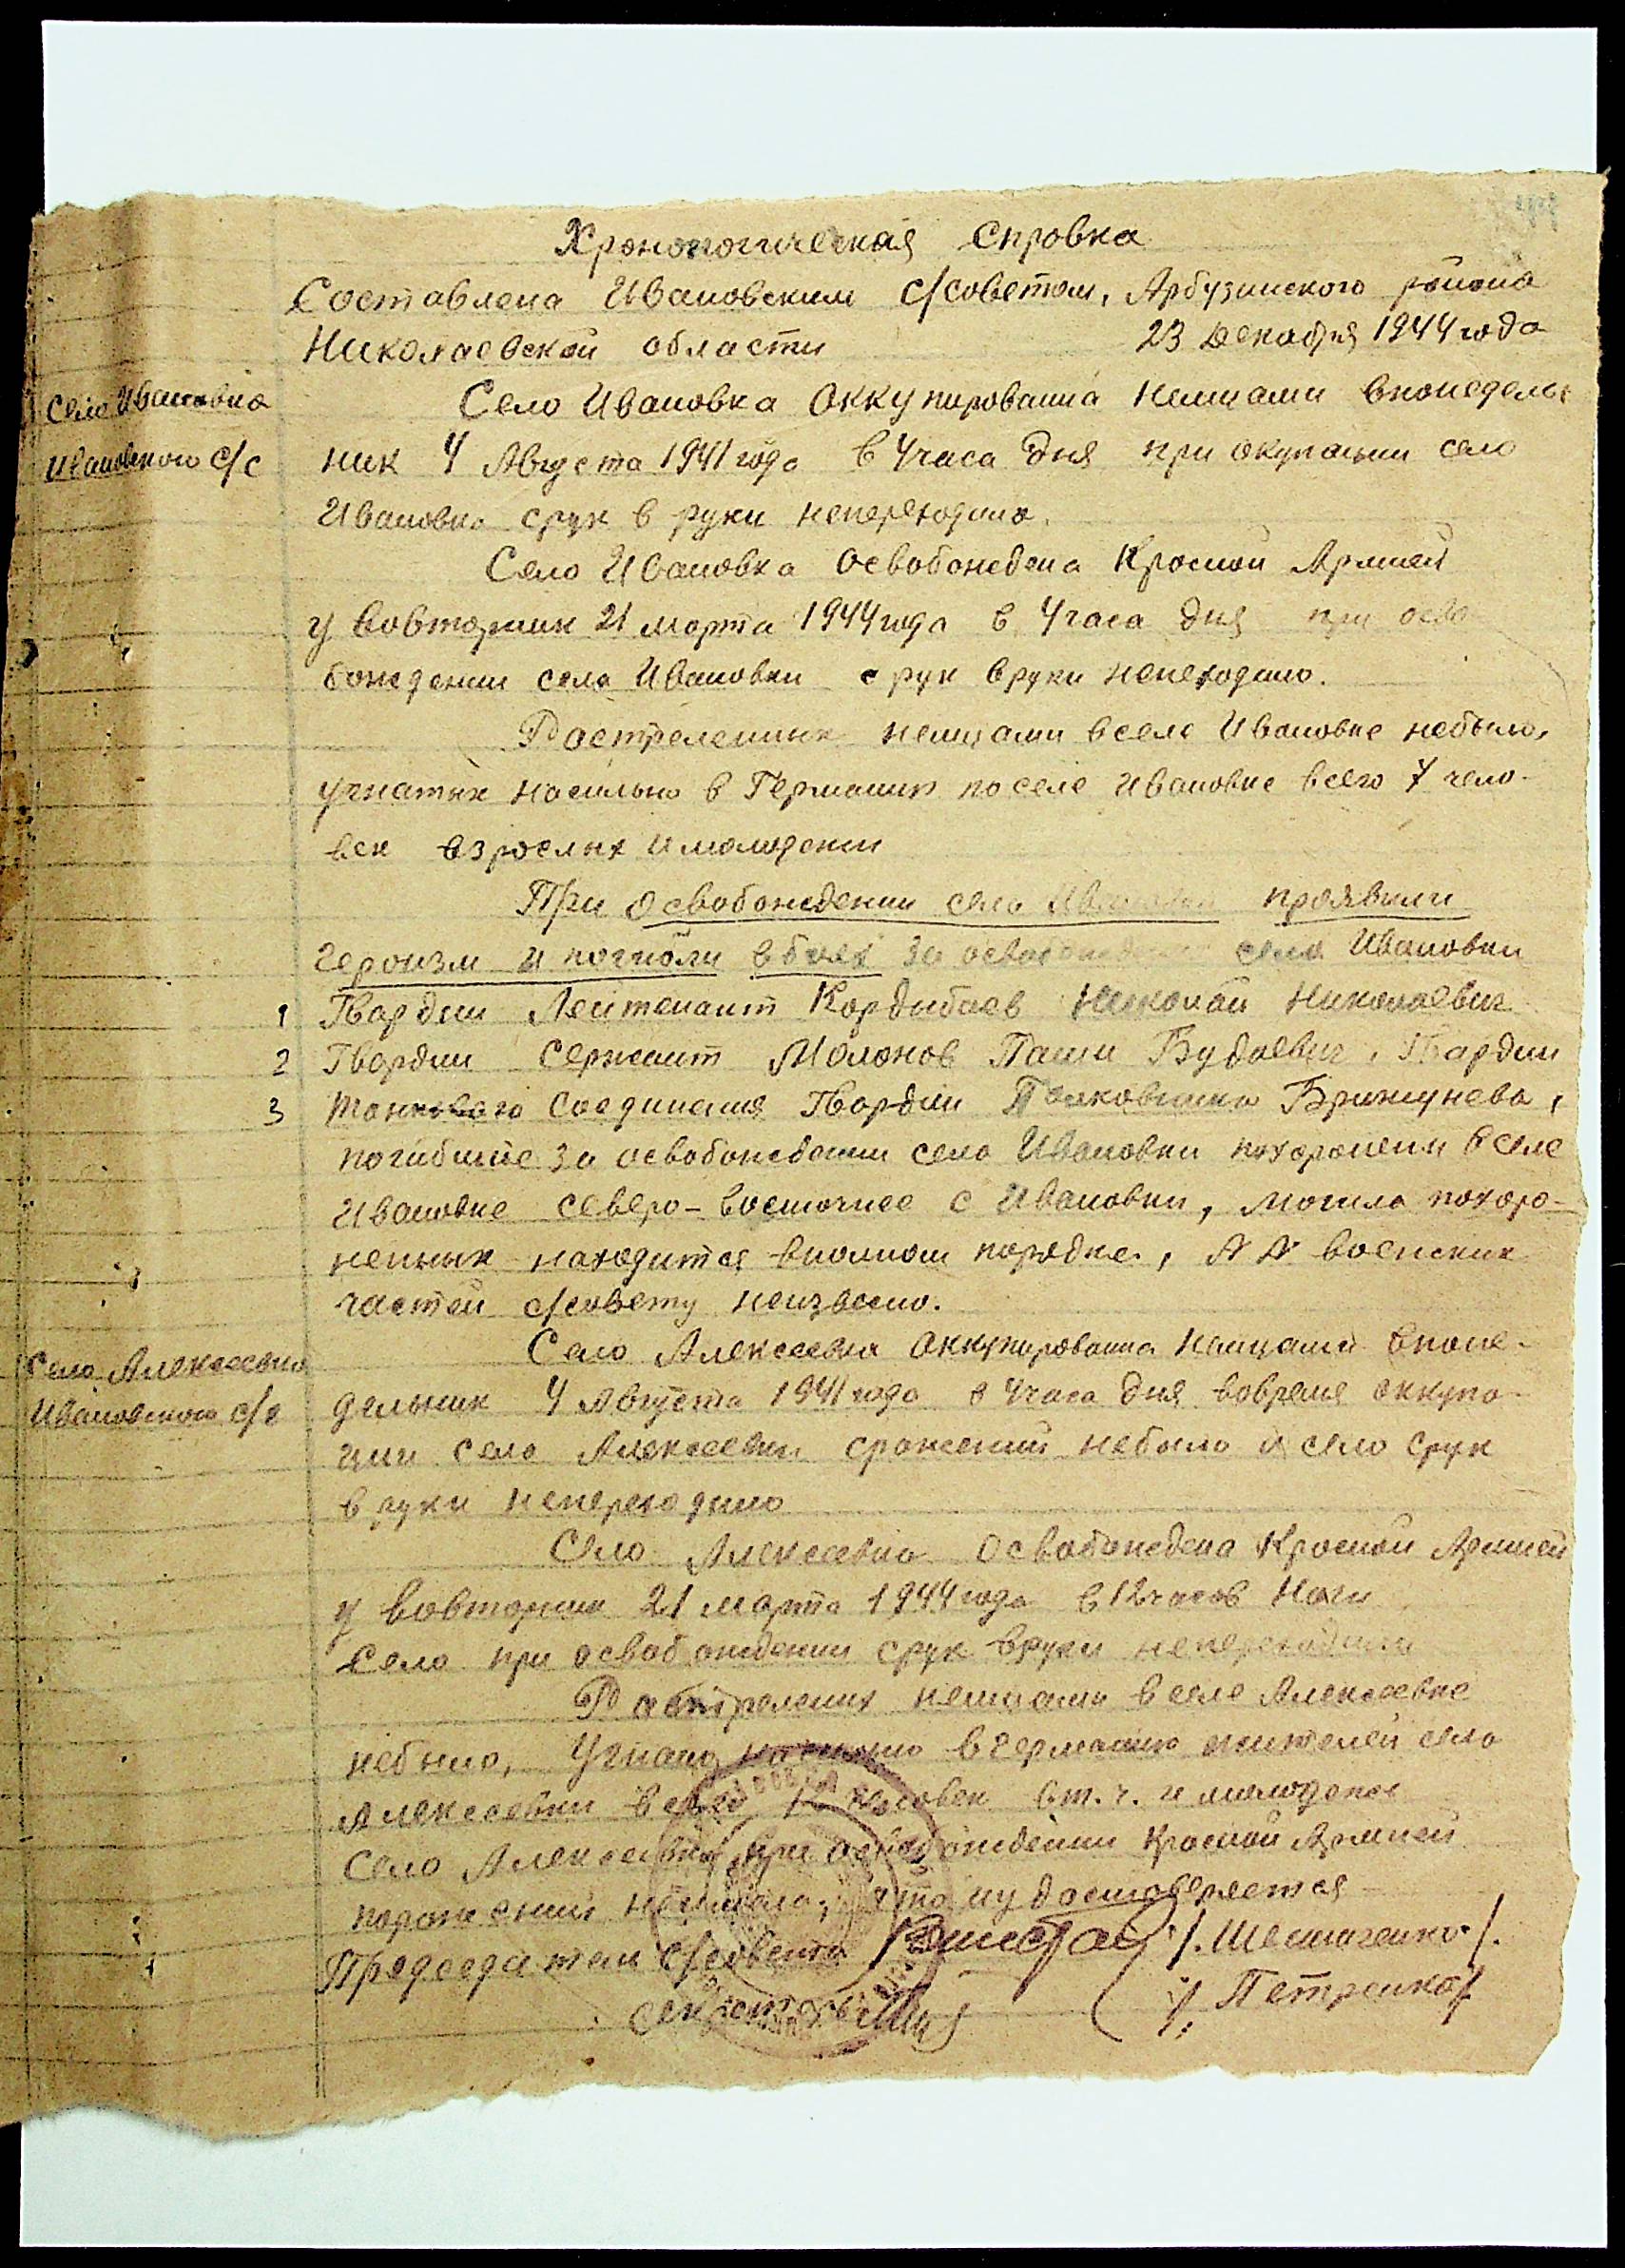 Хронологическая справка
Составлена Ивановским с/советом, Арбузинского района
Николаевской области 23 декабря 1944 года
Село Ивановка
Ивановского с/с
Село Ивановка оккупированна немцами впонедель-
ник 4 Августа 1941 года в 4 часа дня при окупации село
Ивановка срук в руки непереходила.
Село Ивановка освобождена Красной Армией
у вовторник 21 марта 1944 года в 4 часа дня при осво-
бождении села Ивановки с рук вруки непеходило.
Растреленных немцами вселе Ивановке небыло,
угнатых насильно в Германию по селе Ивановке всего 7 чело-
век взрослых и молодежи
При освобождении села Ивановки проявили
героизм и погибли в боях за освобождение села Ивановки
1 Гвардии Лейтенант Кардыбаев Николай Николаевич
2 Гвардии Сержант Молонов Паши Будаевич, Гвардии
3 танкового соединения Гвардии Полковника
погибшие за освобождении села Ивановки похоронены вселе
Ивановке северо-восточнее с Ивановки, могила похоро-
ненных находится вполном порядке, № № воинских
частей с/совету неизвесно.
Село Алексеевка
Ивановского с/с
Село Алексеевка оккупированна немцами впоне-
дельник 4 Августа 1941 года в 4 часа дня вовремя оккупа-
ции села Алексеевки сражений небыло и село срук
в руки непереходило
Село Алексеевка освобождена Красной Армией
у вовторник 21 марта 1944 года в 12 часов ночи
село при освобождении срук вруки непереходило
Растреленых немцами вселе Алексеевке
небыло, Угнано насильно в Германию жителей села
Алексеевки всего 12 человек в т. ч. и молодежь
Село Алексеевка при освобождении Красной Армией
поражений неимела, что и удостоверяется
Председатель с/совета /. Шемшаченко /.
Секретарь /. Петренко /